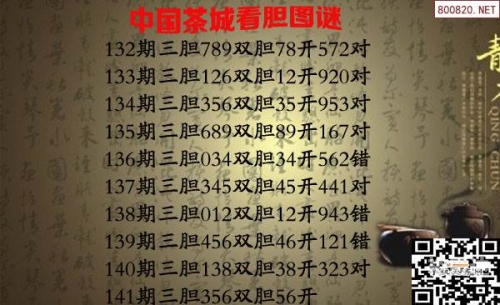 800820.NET
中国茶城看胆图谜
132期三胆789双胆78开572对
133期三胆126双胆12开920对
134期三胆356双胆35开953对
135期三胆689双胆89开167对
136期三胆034双胆34开562错
137期三胆345双胆45开441对
138期三胆012双胆12开943错
139期三胆456双胆46开121错
140期三胆138双胆38开323对
141期三胆356双胆56开